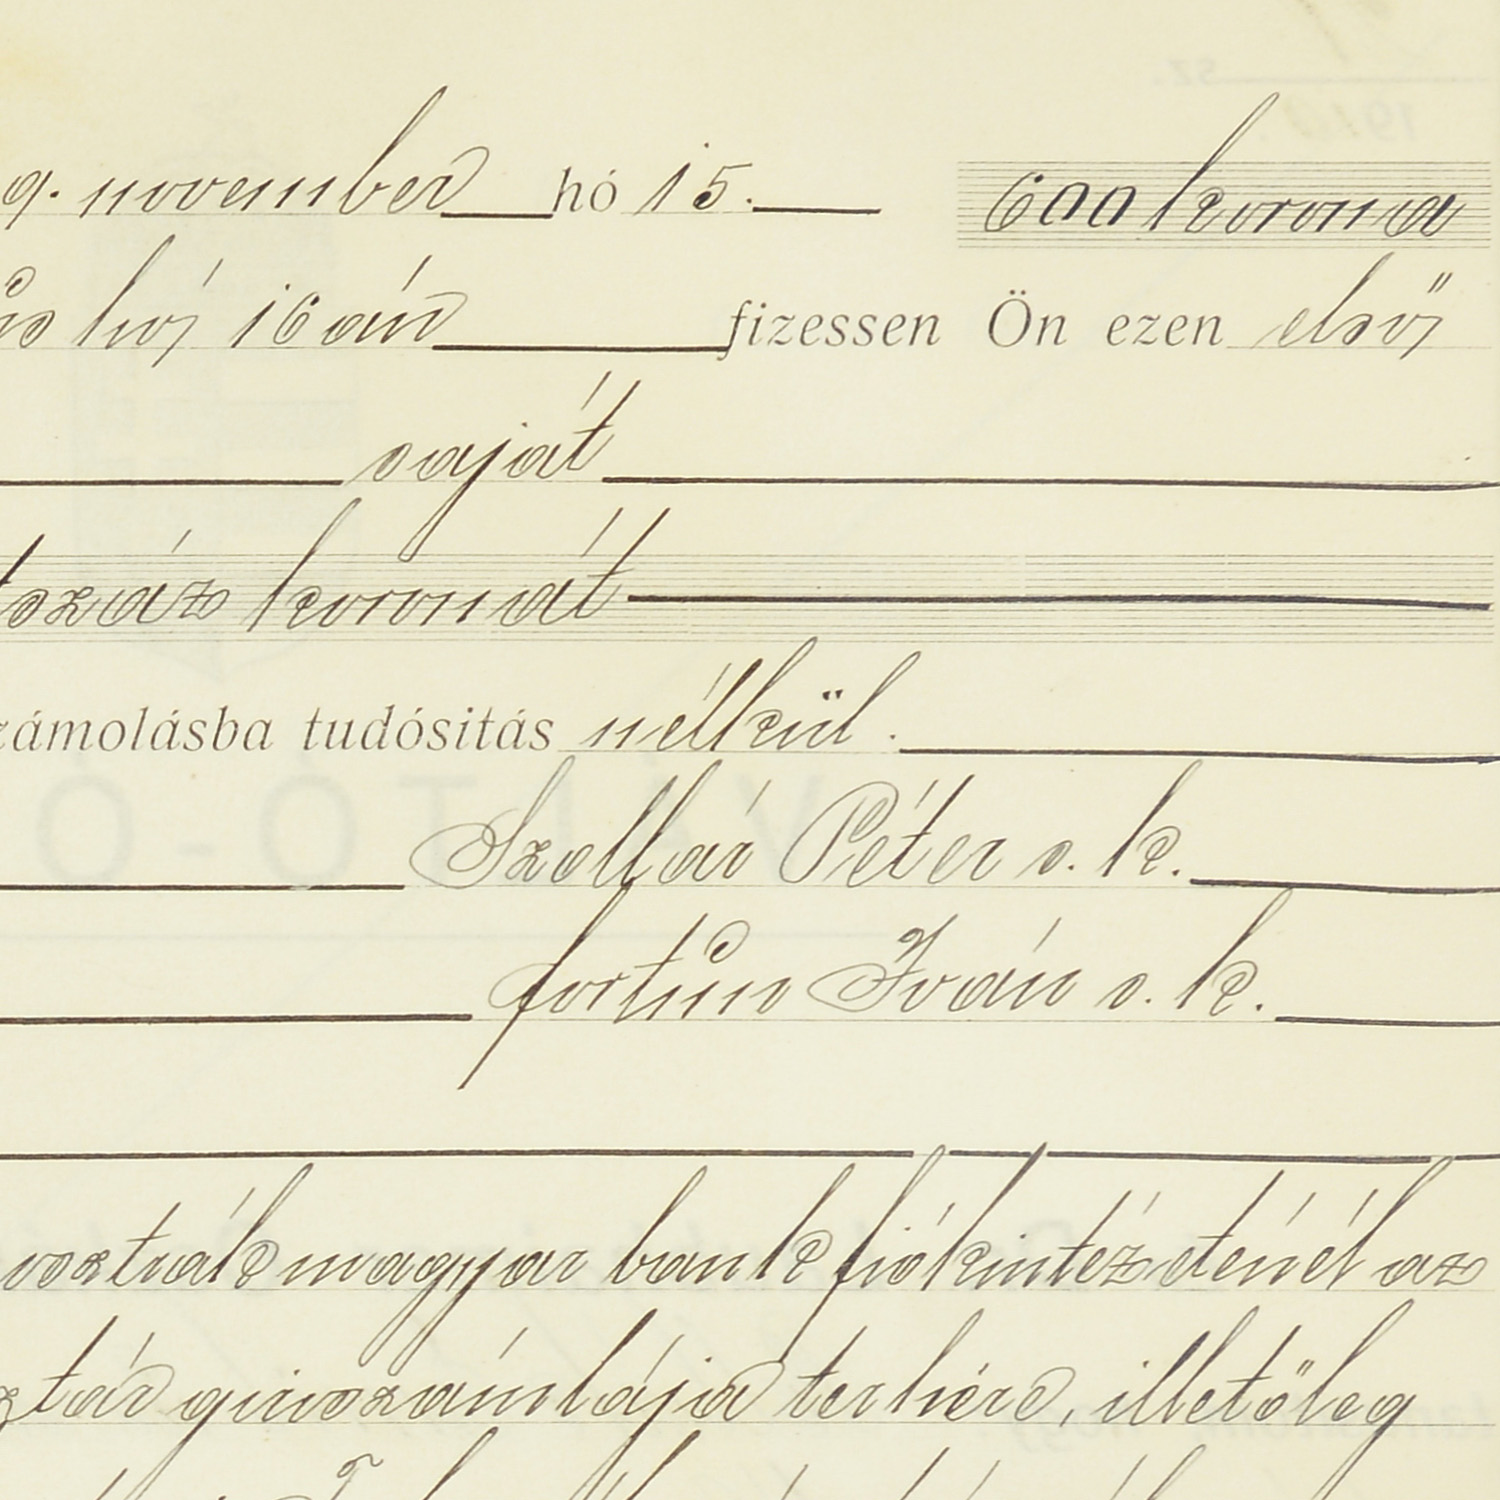 9. november hó 15. 600 korona
hó 16 án fizessen Ön ezen első
saját
száz koronát
számolásba tudósitás nélkül.
Szollár Péter s. k.
fortün Iván s. k.
osztrák magyar bank fiókintézeténél az
girószámlája terhére, illetőleg